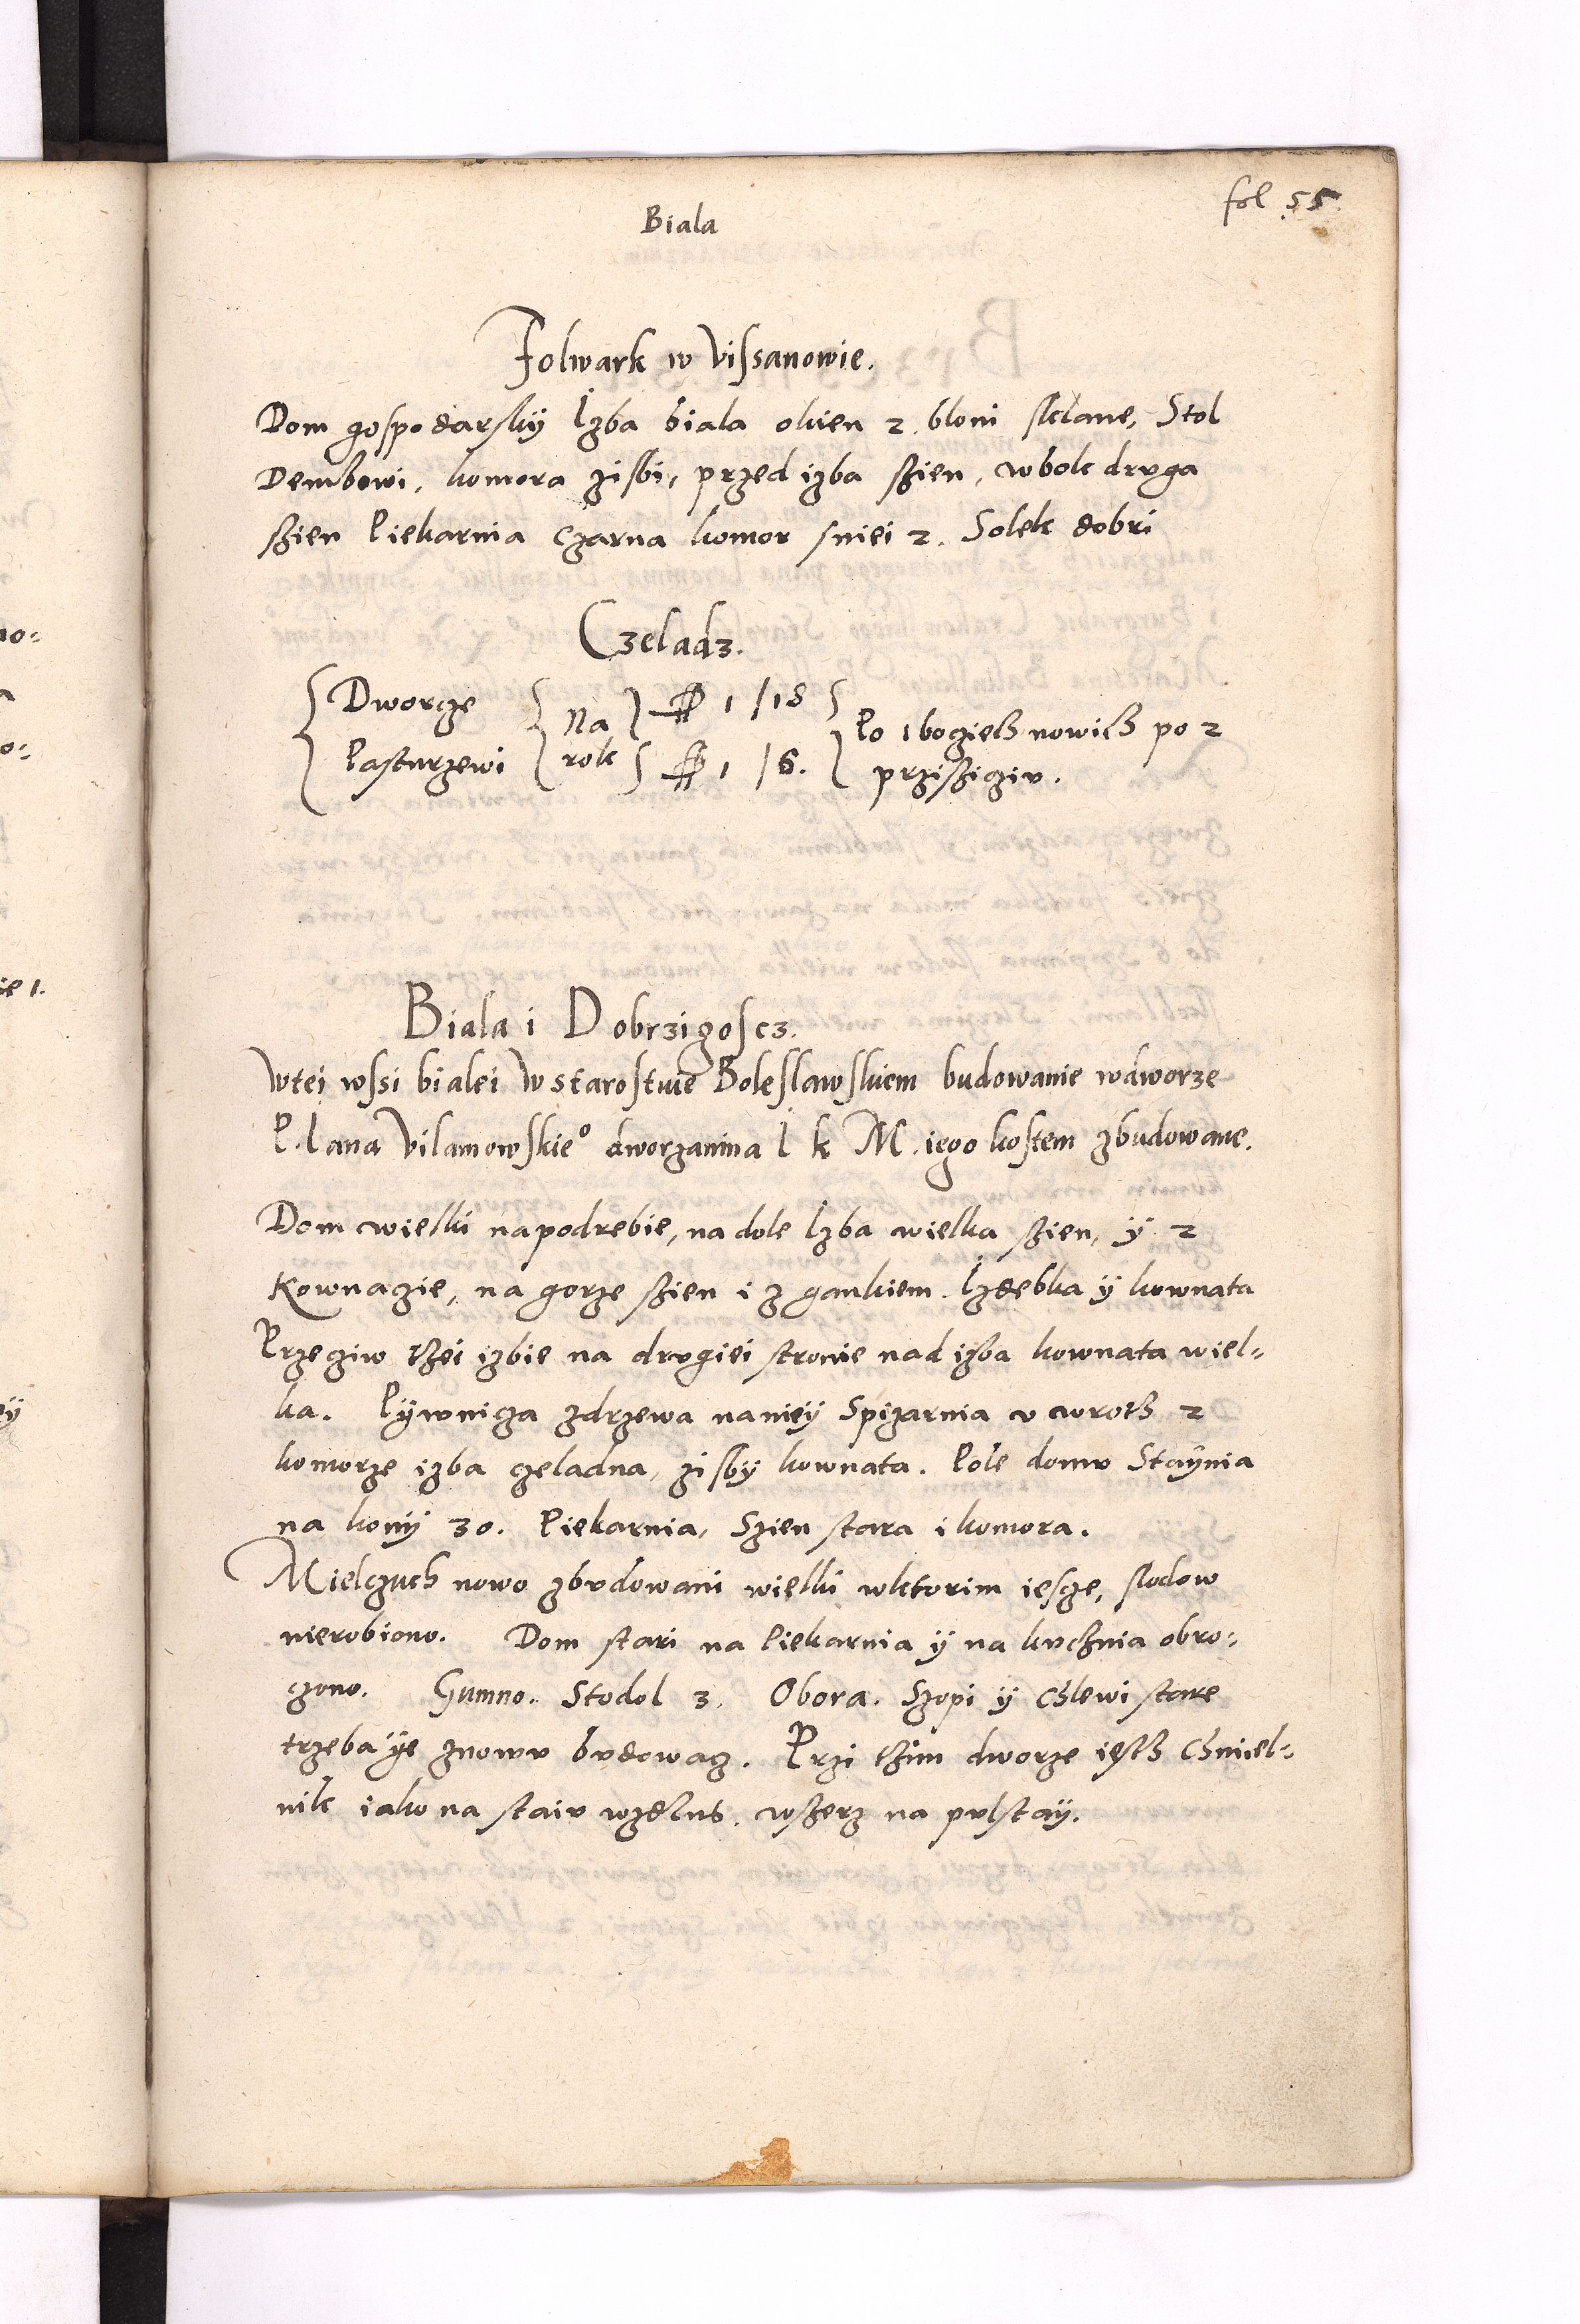 fol. 55.
Biala
Folwark w Vissanowie.
Dom gospodarsky Izba biala okien 2. bloni sklane, Stol
Dembowi, komora zisbi, przed izba szien, wbok druga
szien Piekarnia czarna komor sniei 2. Solek dobri
Czeladz.
Dworcze Na 1 /18
Pasturzewi rok 1 /6.
Po 1 bocziech nowich po 2
przisziciv.
Biala i Dobrzigoscz.
Wtei wssi bialei W starostwie Boleslawskiem budowanie wdworze
P. Iana Vilamowskieo dworzanina I K M. iego kostem zbudowane.
Dom wielki napodrebie, na dole Izba wielka szien, ÿ 2
Kownaczie, na gorze szien i z gankiem. Izdebka ÿ kownata
Przecziw thei izbie na drvgiei stronie nad izba kownata wiel-
ka. Pÿwnicza zdrzewa na nieÿ Spizarnia v wroth 2
komorze izba czeladna, zisbÿ kownata. Pole domv Staÿnia
na konÿ 30. Piekarnia, Szien stara i komora.
Mielczuch nowo zbvdowani wielki wktorim iescze, slodow
nierobiono. Dom stari na Piekarnia ÿ na kvchnia obro-
czono. Gumno. Stodol 3. Obora. Szopi ÿ Chlewi stare
trzeba ÿe znowv bvdowacz. Przi thim dworze iesth Chmiel-
nik iako na staiv wzdlus. wszerz na pvlstaÿ.